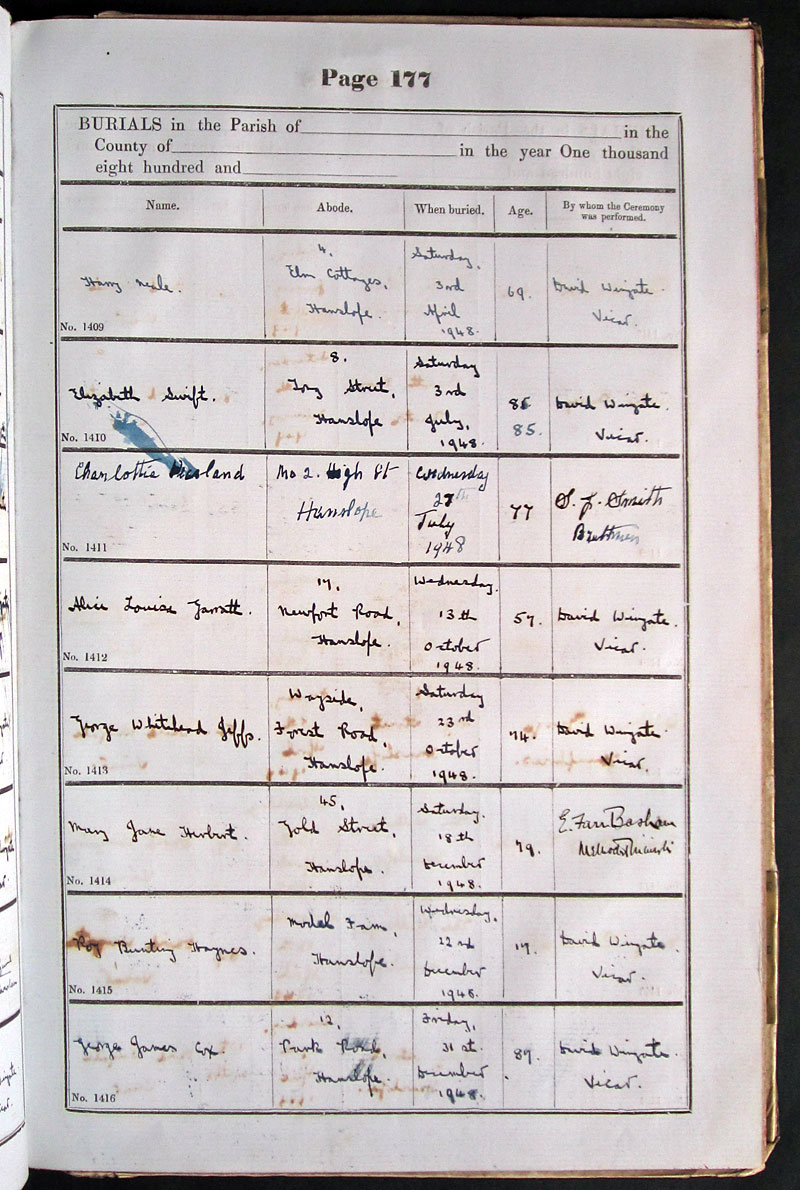 Page 177
BURIALS in the Parish of in the
County of in the year One thousand
eight hundred and
Name. Abode. When buried. Age. By whom the Ceremony
was performed.
Harry Neale. 4, Elm Cottages, Hanslope. Saturday, 3rd April 1948. 69. David Wingate. Vicar.
No. 1409
Elizabeth Swift. 8. Long Street, Hanslope Saturday 3rd July, 1948. 85. David Wingate. Vicar.
No. 1410
Charlotte No 2. High St Hanslope Wednesday 27th July 1948 77 S. J. Smith Brethren
No. 1411
Alice Louise Garratt. 17, Newport Road, Hanslope. Wednesday. 13th October 1948. 57. David Wingate. Vicar.
No. 1412
George Whitehead Jeffs. Wayside, Forest Road, Hanslope. Saturday 23rd October 1948. 74. David Wingate. Vicar.
No. 1413
Mary Jane Herbert. 45, Gold Street, Hanslope. Saturday. 18th December 1948. 79. E. Farr Methodist Minister
No. 1414
Roy Bunting Haynes. Model Farm, Hanslope. Wednesday, 22nd December 1948. 17. David Wingate. Vicar.
No. 1415
George James Cox. 12, Park Road, Hanslope. Friday, 31st. December 1948. 87. David Wingate. Vicar.
No. 1416